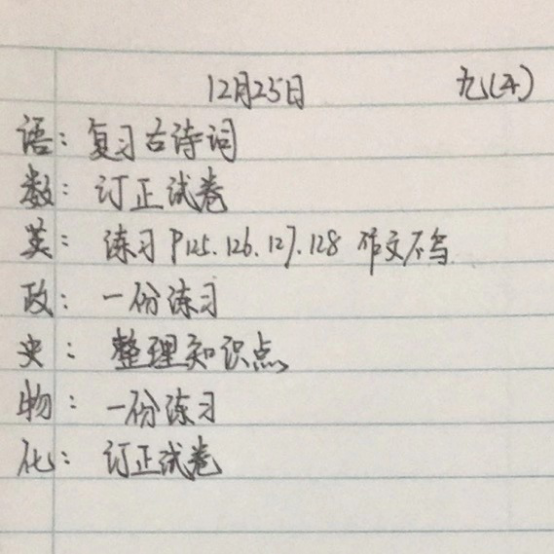 12月25日 九(4)
语: 复习古诗词
数: 订正试卷
英: 练习 P125.126.127.128 作文不写
政: 一份练习
史: 整理知识点
物: 一份练习
化: 订正试卷